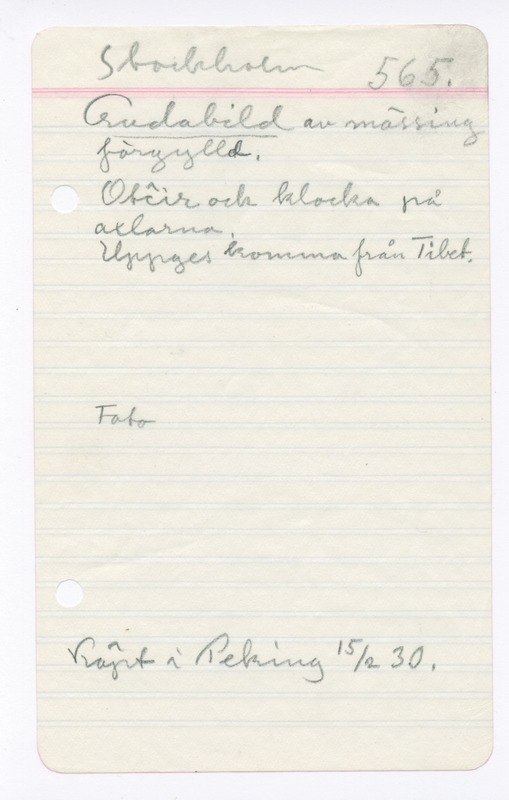 Stockholm 565.
Gudabild av mässing
förgylld.
Otčir och klocka på
axlarna.
Uppges komma från Tibet.
Foto
Köpt i Peking 15/2 30.